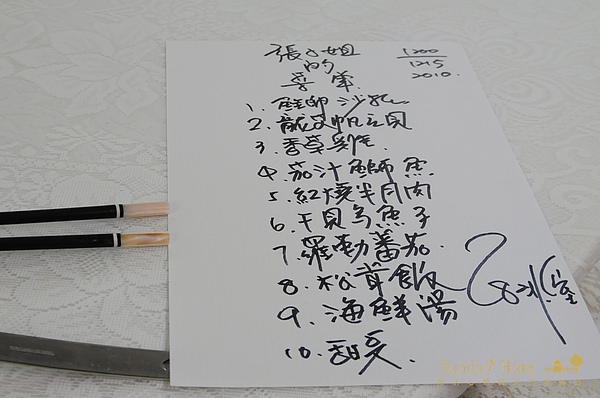 張小姐
的
菜單
1200
1215
2010.
1. 鮭卵沙拉
2. 龍蝦帆立貝
3. 香草雞.
4. 茄汁鰤魚
5. 紅燒半月肉
6. 干貝烏魚子
7. 羅勒蕃茄.
8. 松茸飯
9. 海鮮湯
10. 甜湯.